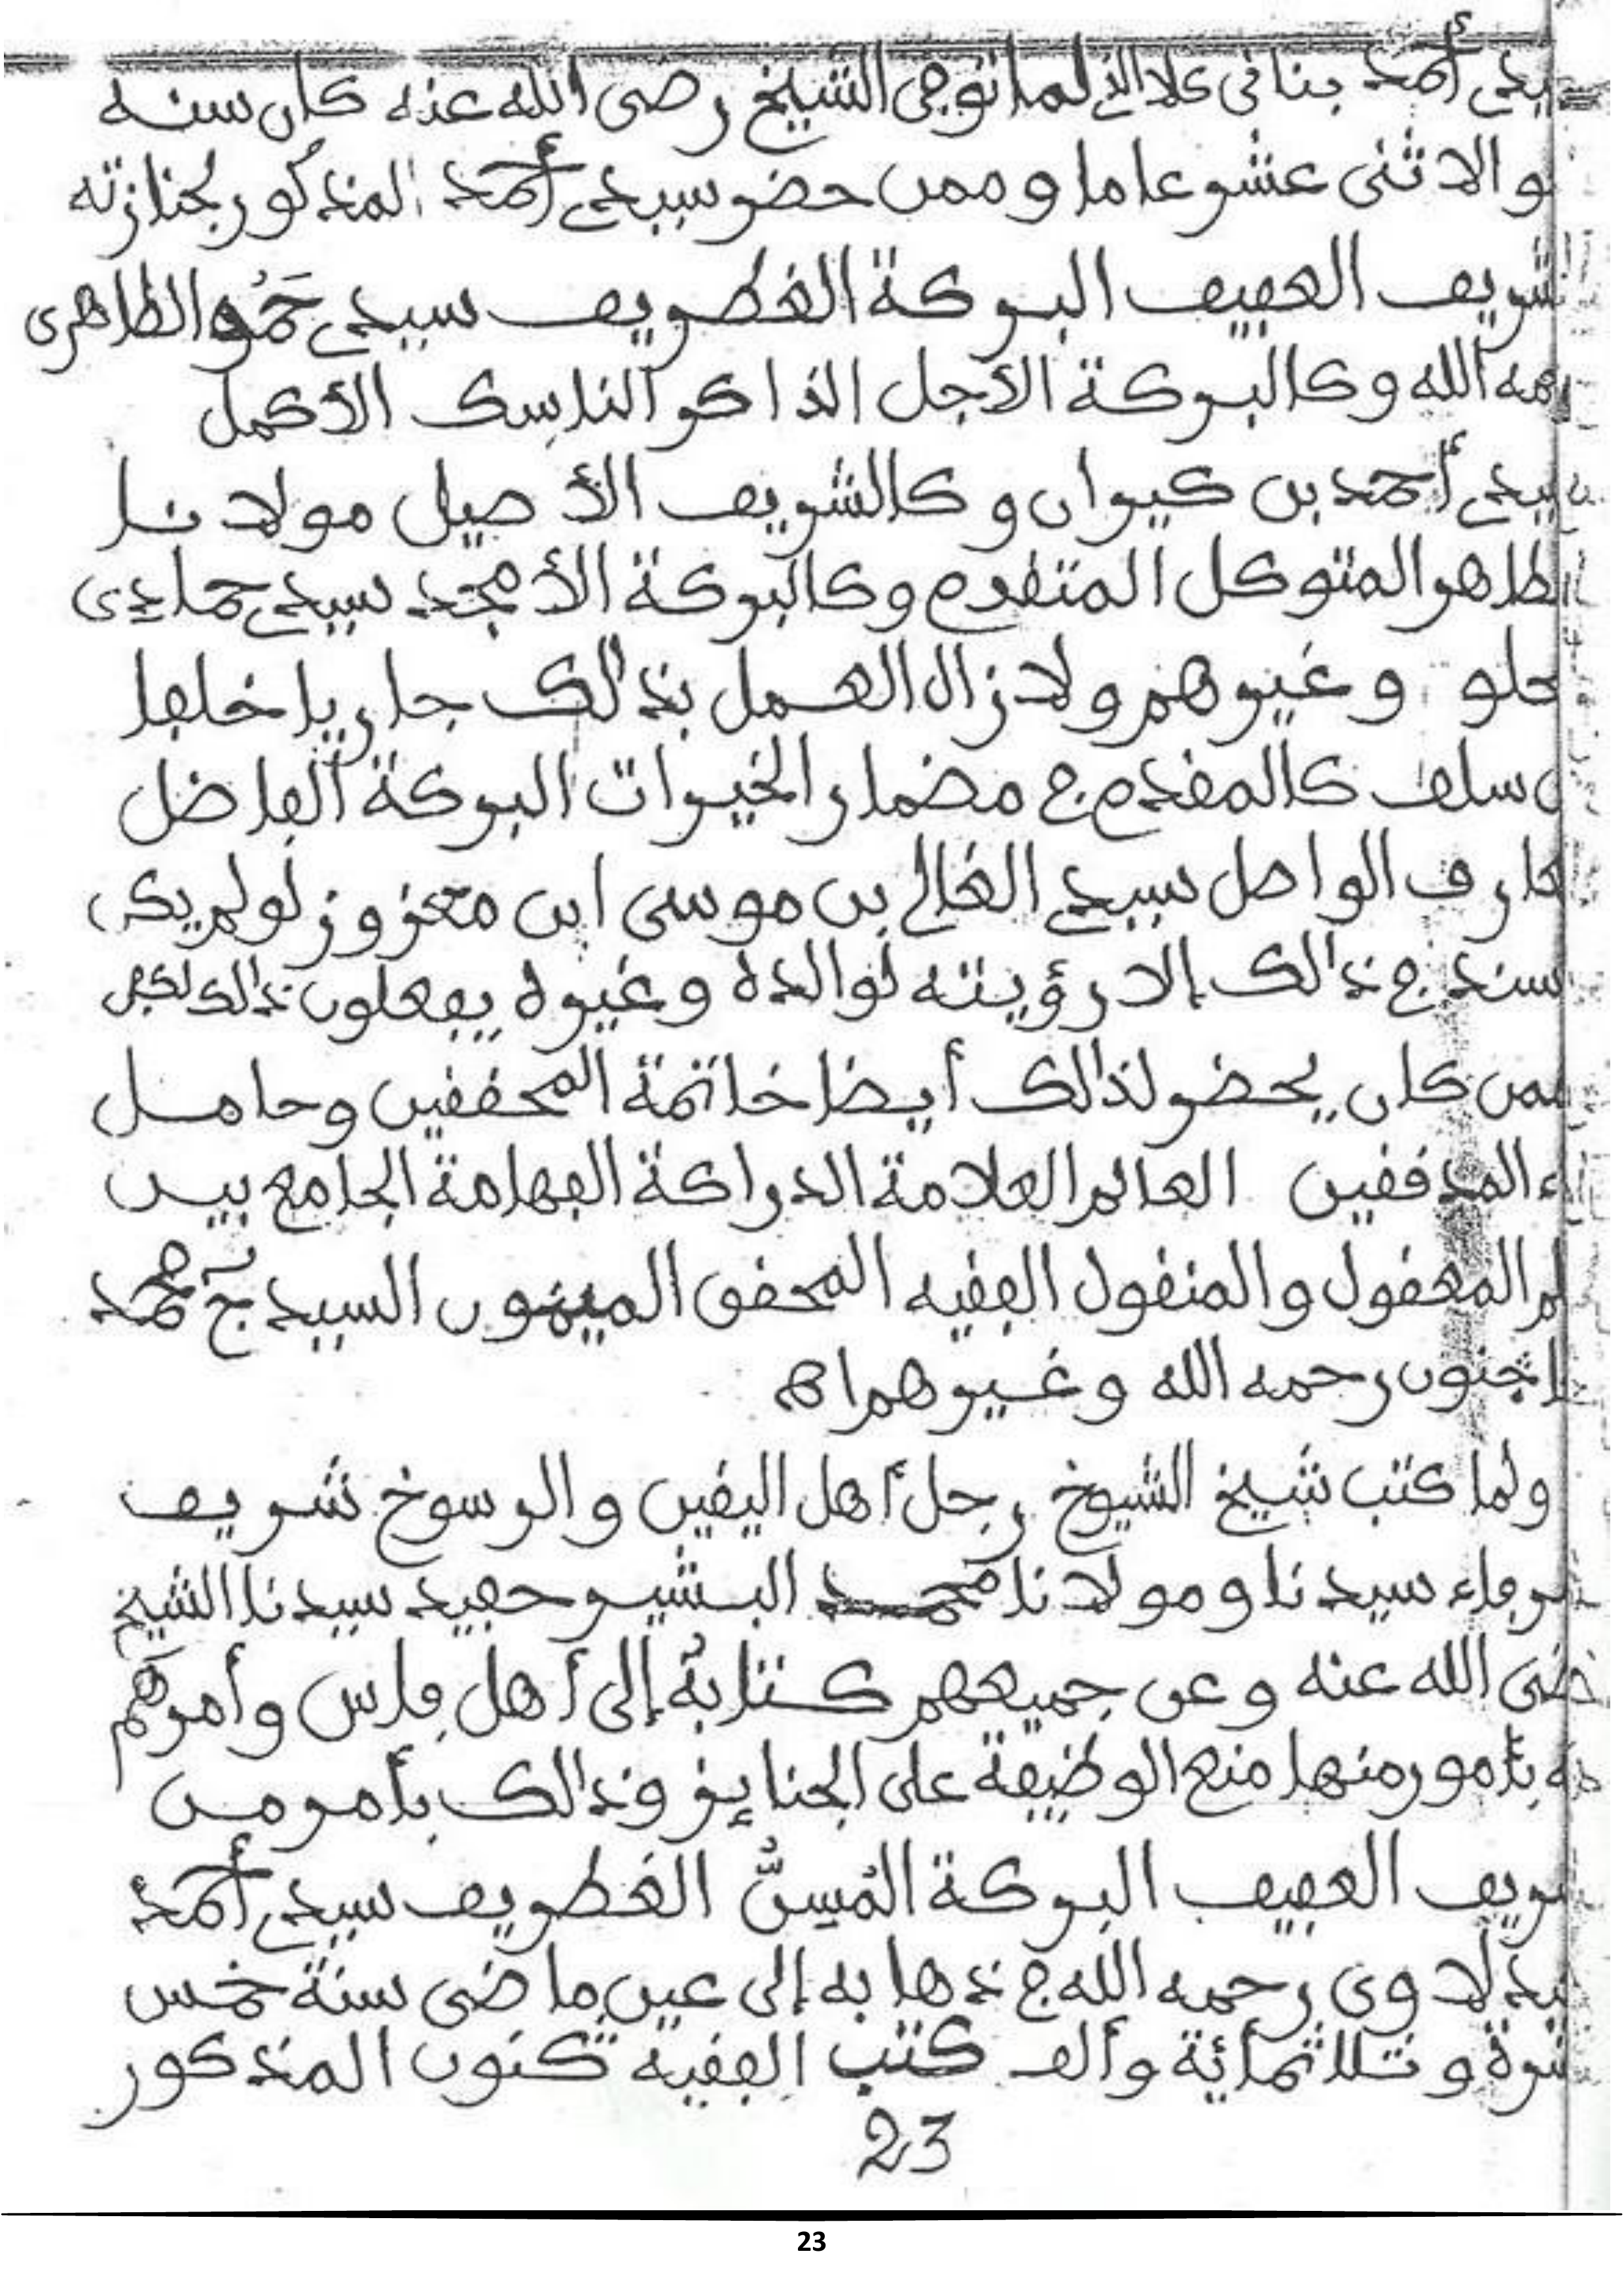 سيدي أحمد بناني كلا الذي لما توفي الشيخ رضي الله عنه كان سنه
نحو الاثني عشر عاما وممن حضر سيدي أحمد المذكور لجنازته
الشريف العفيف البركة الغطريف سيدي حَمُّو الطاهري
رحمه الله وكالبركة الأجل الذاكر الناسك الأكمل
سيدي أحمد بن كيران وكالشريف الأصيل مولانا
الطاهر المتوكل المتقدم وكالبركة الأمجد سيدي حمادي
وغيرهم ولازال العمل بذالك جاريا خلفا
عن سلف كالمقدم في مضمار الخيرات البركة الفاضل
العارف الواصل سيدي الغالي بن موسى ابن معزوز لو لم يكن
سند في ذالك إلا رؤيته لوالده وغيره يفعلون ذالك لكفى
وممن كان يحضر لذالك أيضا خاتمة المحققين وحامل
لواء المدققين العالم العلامة الدراكة الفهامة الجامع بين
المعقول والمنقول الفقيه المحقق الميمون السيد ج محمد
اجنون رحمه الله وغيرهم اه
ولما كتب شيخ الشيوخ رجل أهل اليقين والرسوخ شريف
الشرفاء سيدنا ومولانا محمد البشير حفيد سيدنا الشيخ
رضى الله عنه وعن جميعهم كتابةً إلى أهل فاس وأمرهم
فيه بأمور منها منع الوظيفة على الجنايز وذالك بأمر من
الشريف العفيف البركة المُسِنُّ الغطريف سيدي أحمد
العبدلاوي رحمه الله في ذهابه إلى عين ماضى سنة خمس
عشرة وثلاثمائة وألف كتب الفقيه كنون المذكور
23
23